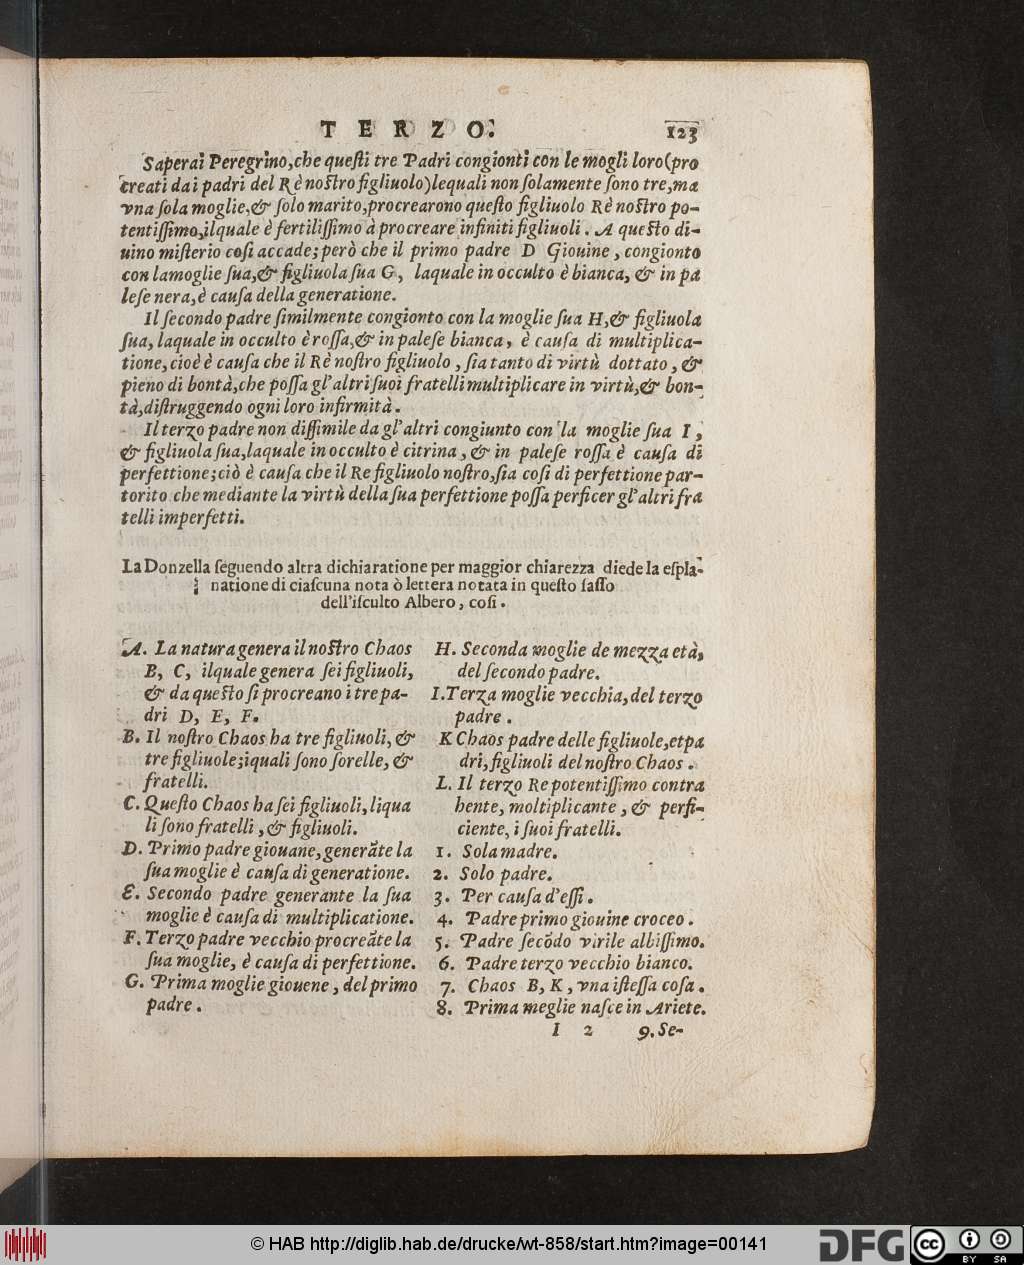 TERZO.
123
Saperai Peregrino,che queſti tre Padri congionti con le mogli loro(pro
creati dai padri del Rè noſtro figliuolo)lequali non ſolamente ſono tre,ma
vna ſola moglie,& ſolo marito,procrearono queſto figliuolo Rè noſtro po-
tentiſſimo,ilquale è fertiliſſimo à procreare infiniti figliuoli. A queſto di-
uino miſterio coſi accade; però che il primo padre D Giouine, congionto
con lamoglie ſua,& figliuola ſua G, laquale in occulto è bianca, & in pa
leſe nera,è cauſa della generatione.
Il ſecondo padre ſimilmente congionto con la moglie ſua H,& figliuola
ſua, laquale in occulto è roſſa,& in paleſe bianca, è cauſa di multiplica-
tione,cioè è cauſa che il Rè noſtro figliuolo, ſia tanto di virtù dottato, &
pieno di bontà,che poſſa gl'altri ſuoi fratelli multiplicare in virtù,& bon-
tà,diſtruggendo ogni loro infirmità.
Il terzo padre non diſſimile da gl'altri congiunto con la moglie ſua I,
& figliuola ſua,laquale in occulto è citrina, & in paleſe roſſa è cauſa di
perfettione;ciò è cauſa che il Re figliuolo noſtro,ſia coſi di perfettione par-
torito che mediante la virtù della ſua perfettione poſſa perficer gl'altri fra
telli imperfetti.
La Donzella ſeguendo altra dichiaratione per maggior chiarezza diede la eſpla-
natione di ciaſcuna nota ò lettera notata in queſto ſaſſo
dell'iſculto Albero, coſi.
A. La natura genera il noſtro Chaos
B, C, ilquale genera ſei figliuoli,
& da queſto ſi procreano i tre pa-
dri D, E, F.
B. Il noſtro Chaos ha tre figliuoli, &
tre figliuole;iquali ſono ſorelle, &
fratelli.
C. Queſto Chaos ha ſei figliuoli, liqua
li ſono fratelli, & figliuoli.
D. Primo padre giouane, generãte la
ſua moglie è cauſa di generatione.
E. Secondo padre generante la ſua
moglie è cauſa di multiplicatione.
F. Terzo padre vecchio procreãte la
ſua moglie, è cauſa di perfettione.
G. Prima moglie giouene, del primo
padre.
H. Seconda moglie de mezza età,
del ſecondo padre.
I. Terza moglie vecchia, del terzo
padre.
K Chaos padre delle figliuole,et pa
dri, figliuoli del noſtro Chaos.
L. Il terzo Re potentiſſimo contra
hente, moltiplicante, & perfi-
ciente, i ſuoi fratelli.
1. Sola madre.
2. Solo padre.
3. Per cauſa d'eſſi.
4. Padre primo giouine croceo.
5. Padre ſecõdo virile albiſſimo.
6. Padre terzo vecchio bianco.
7. Chaos B, K, vna iſteſſa coſa.
8. Prima meglie naſce in Ariete.
I 2
9. Se-
© HAB http://diglib.hab.de/drucke/wt-858/start.htm?image=00141
DFG
cc
BY SA